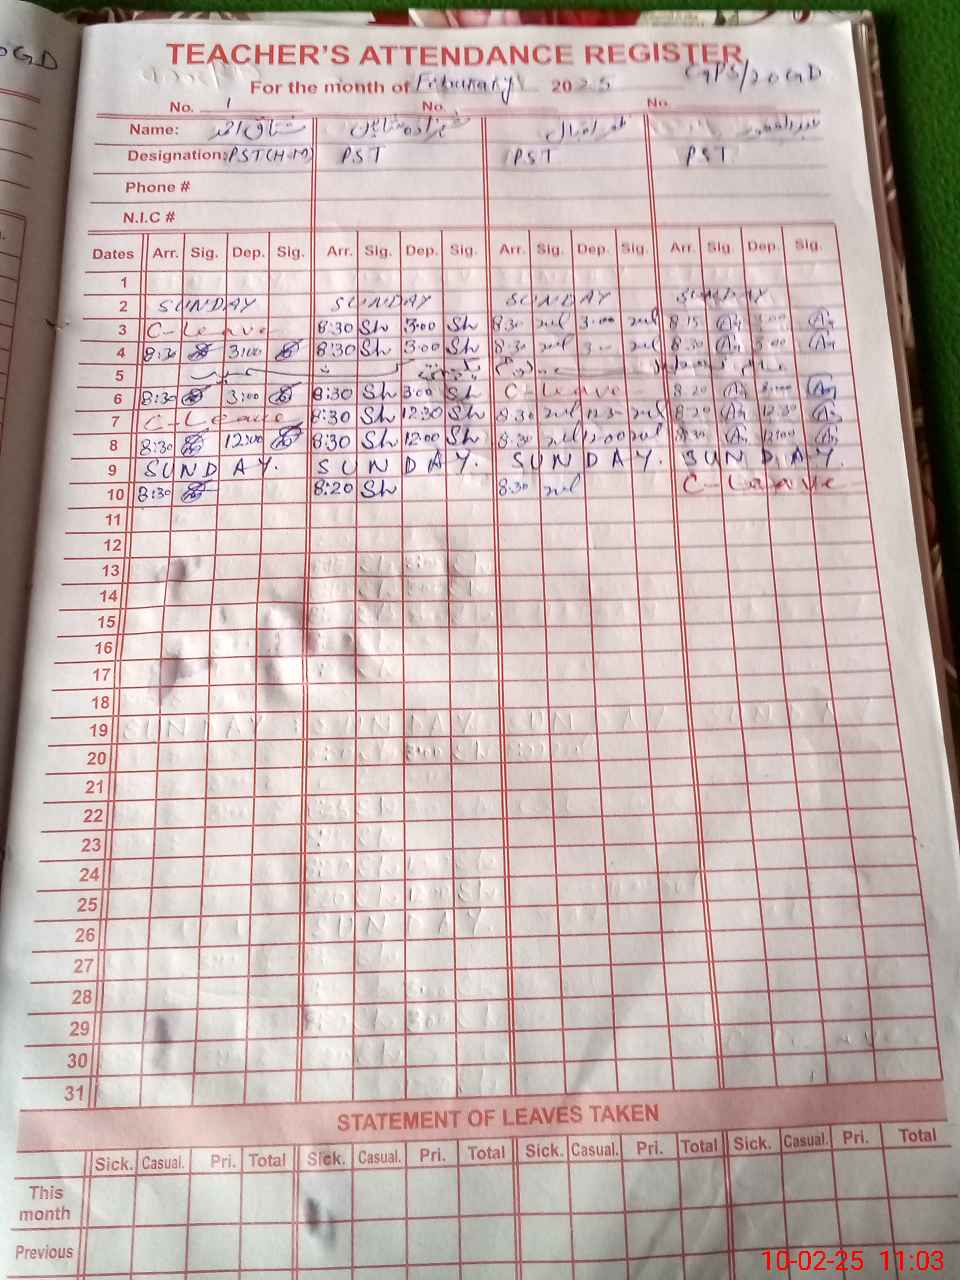 TEACHER'S ATTENDANCE REGISTER
For the month of Febuary 2025 GPS/20GD
No. 1 No. No.
Name: مشتاق احمد شہزادہ شاہین ظفر اقبال
Designation: PST(H.M) PST PST PST
Phone #
N.I.C #
Dates Arr. Sig. Dep. Sig. Arr. Sig. Dep. Sig. Arr. Sig. Dep. Sig. Arr. Sig. Dep. Sig.
1
2 SUNDAY SUNDAY SUNDAY SUNDAY
3 C-Leave 8:30 Sh 3:00 Sh 8:30 3:00 8:15 3:00
4 8:30 3:00 8:30 Sh 3:00 Sh 8:30 3:00 8:30 3:00
5
6 8:30 3:00 8:30 Sh 3:00 Sh C-Leave 8:20 3:00
7 C-Leave 8:30 Sh 12:30 Sh 8:30 12:30 8:20 12:30
8 8:30 12:00 8:30 Sh 12:00 Sh 8:30 12:00 8:30 12:00
9 SUNDAY. SUNDAY. SUNDAY. SUNDAY.
10 8:30 8:20 Sh 8:30 C-Leave
11
12
13
14
15
16
17
18
19
20
21
22
23
24
25
26
27
28
29
30
31
STATEMENT OF LEAVES TAKEN
Sick. Casual. Pri. Total Sick. Casual. Pri. Total Sick. Casual. Pri. Total Sick. Casual. Pri. Total
This month
Previous
10-02-25 11:03